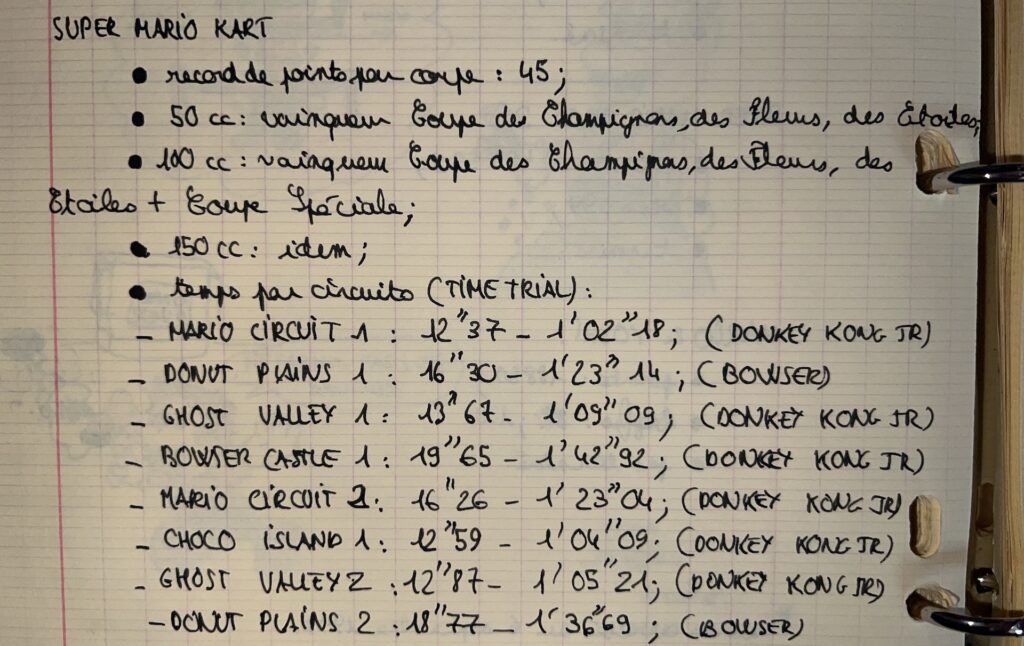 SUPER MARIO KART
• record de points par coupe : 45;
• 50 cc : vainqueur Coupe des Champignons, des Fleurs, des Etoiles;
• 100 cc : vainqueur Coupe des Champignons, des Fleurs, des
Etoiles + Coupe Spéciale;
• 150 cc : idem;
• temps par circuits (TIME TRIAL) :
- MARIO CIRCUIT 1 : 12"37 - 1'02"18; (DONKEY KONG JR)
- DONUT PLAINS 1 : 16"30 - 1'23"14; (BOWSER)
- GHOST VALLEY 1 : 13"67 - 1'09"09; (DONKEY KONG JR)
- BOWSER CASTLE 1 : 19"65 - 1'42"92; (DONKEY KONG JR)
- MARIO CIRCUIT 2 : 16"26 - 1'23"04; (DONKEY KONG JR)
- CHOCO ISLAND 1 : 12"59 - 1'04"09; (DONKEY KONG JR)
- GHOST VALLEY 2 : 12"87 - 1'05"21; (DONKEY KONG JR)
- DONUT PLAINS 2 : 18"77 - 1'36"69; (BOWSER)